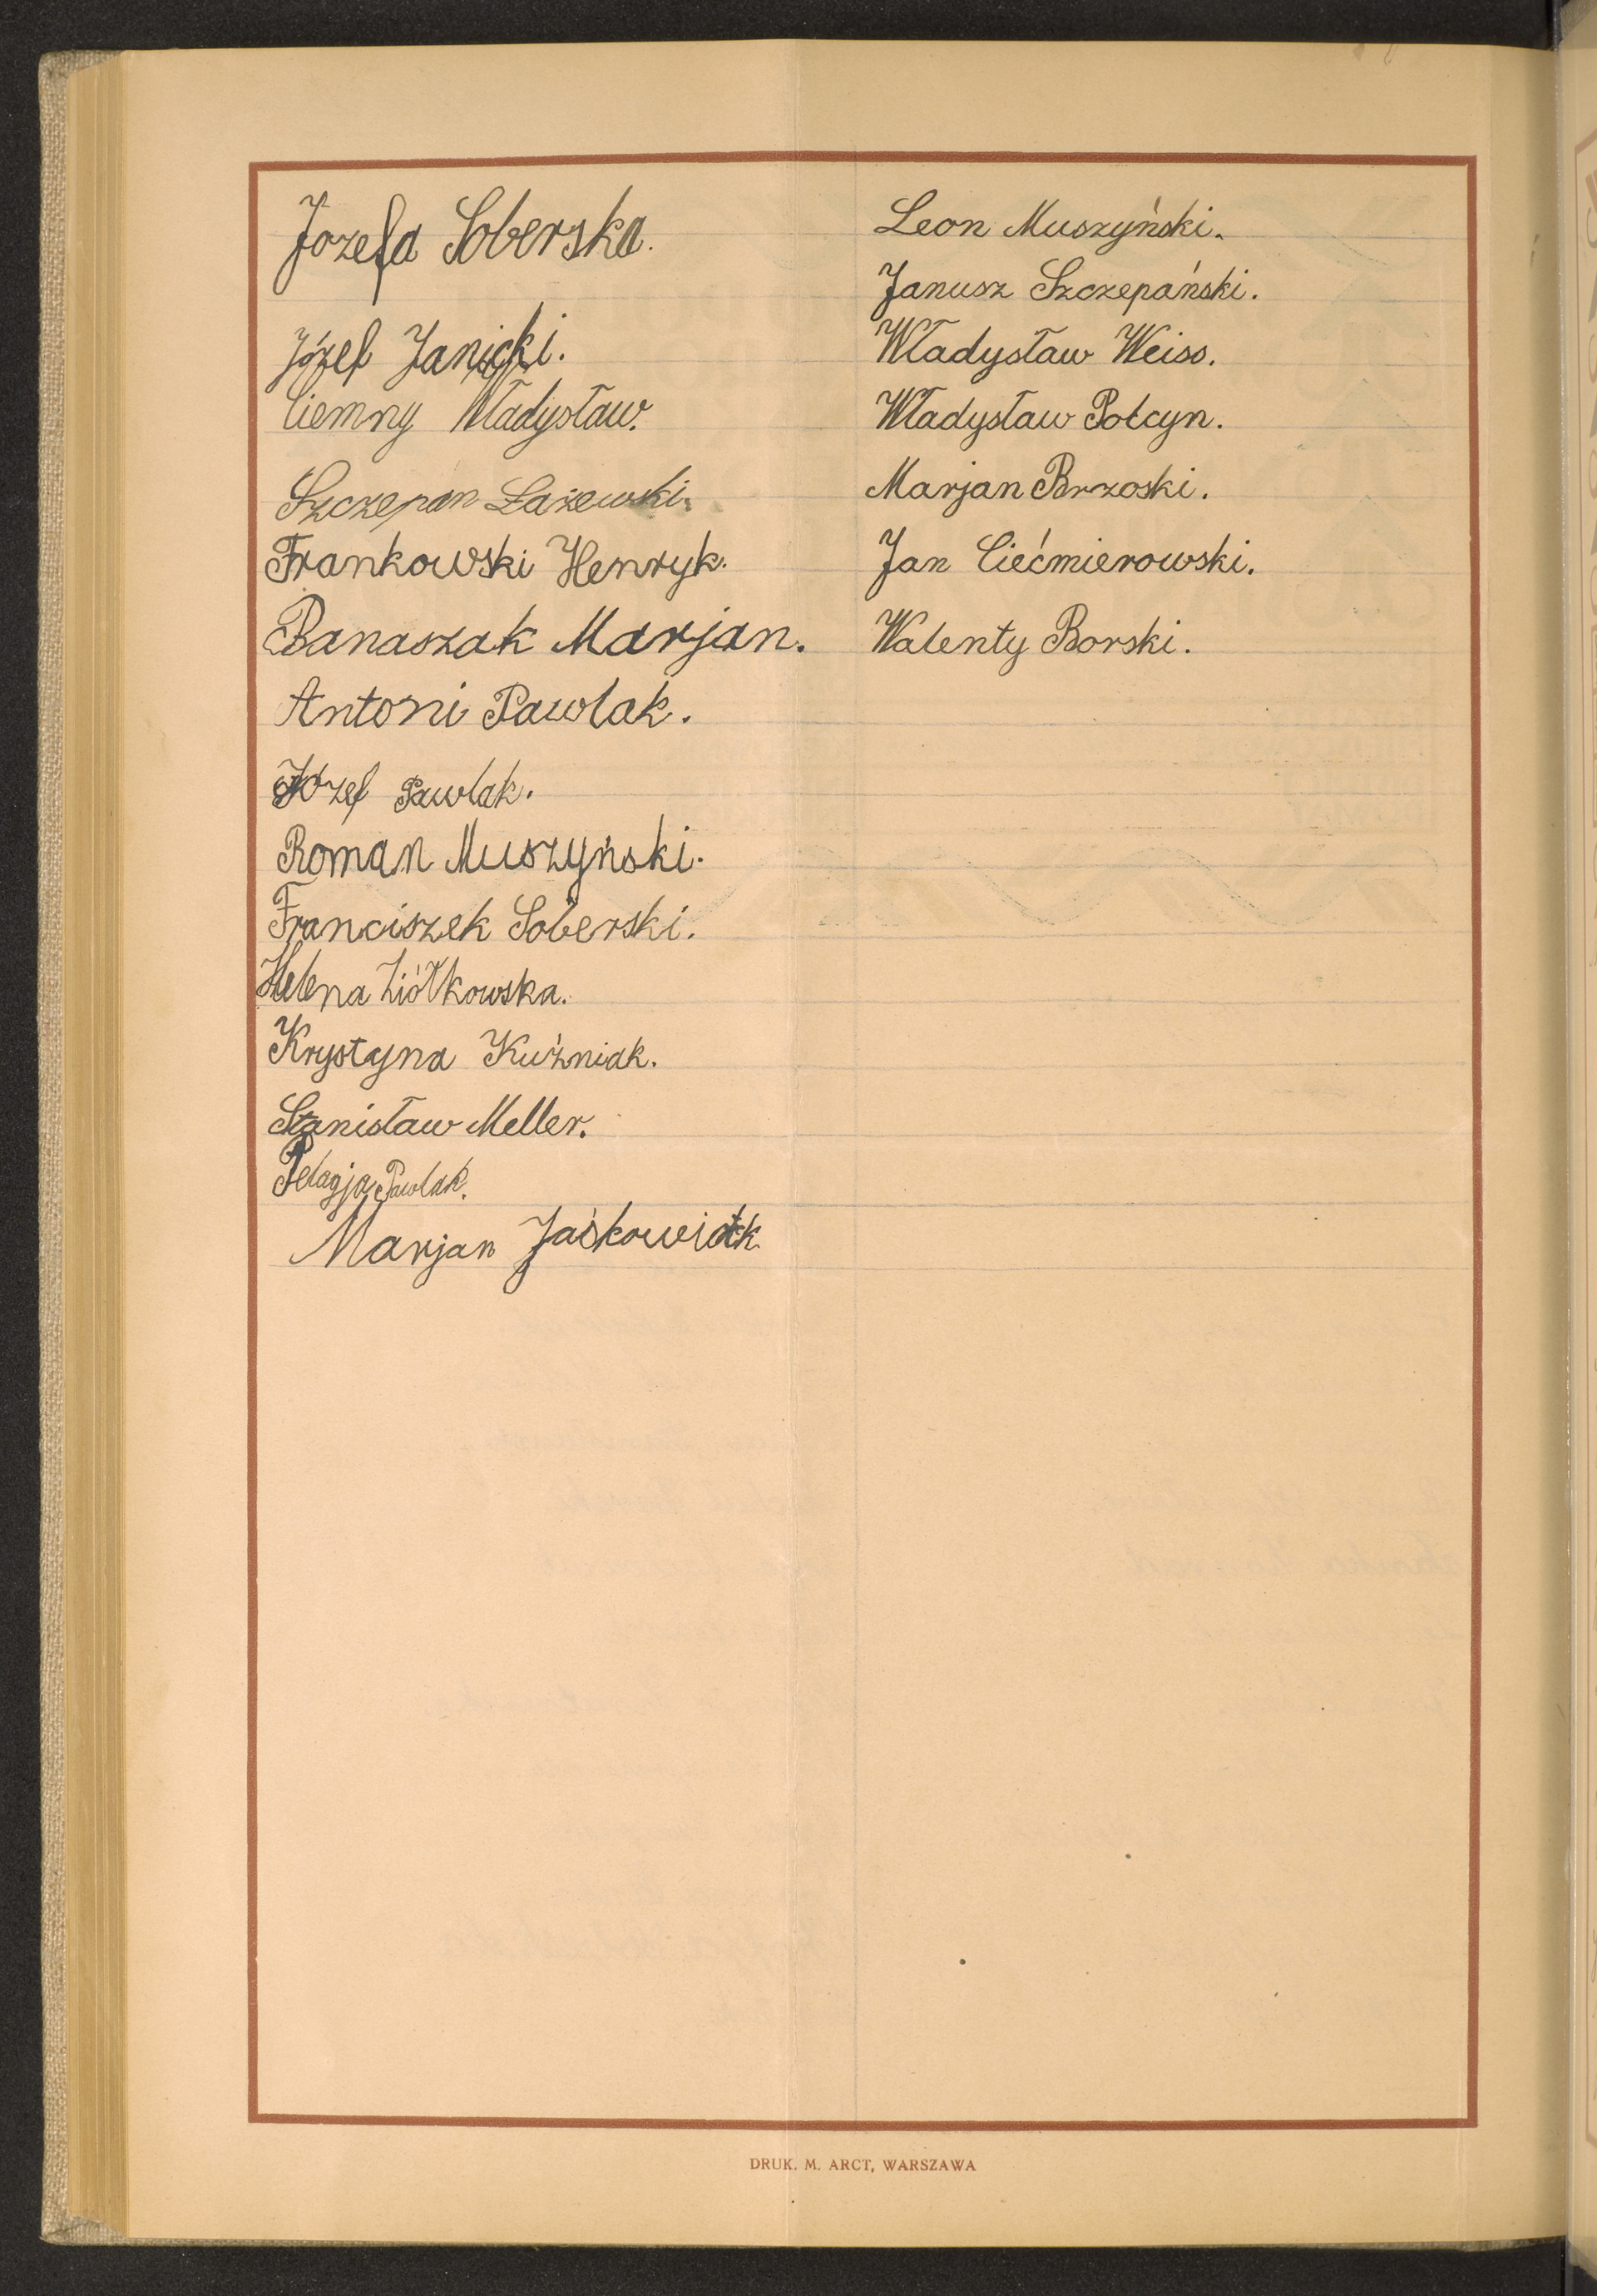 Józefa Soberska.
Józef Janicki.
Ciemny Władysław.
Szczepan Łażewski.
Frankowski Henryk.
Banaszak Marjan.
Antoni Pawlak.
Józef Pawlak.
Roman Muszyński.
Franciszek Soberski.
Helena Ziółkowska.
Krystyna Kuźniak.
Stanisław Meller.
Pelagja Pawlak.
Marjan Jaśkowiak
Leon Muszyński.
Janusz Szczepański.
Władysław Weiss.
Władysław Połcyn.
Marjan Brzoski.
Jan Ciećmierowski.
Walenty Borski.
DRUK. M. ARCT, WARSZAWA